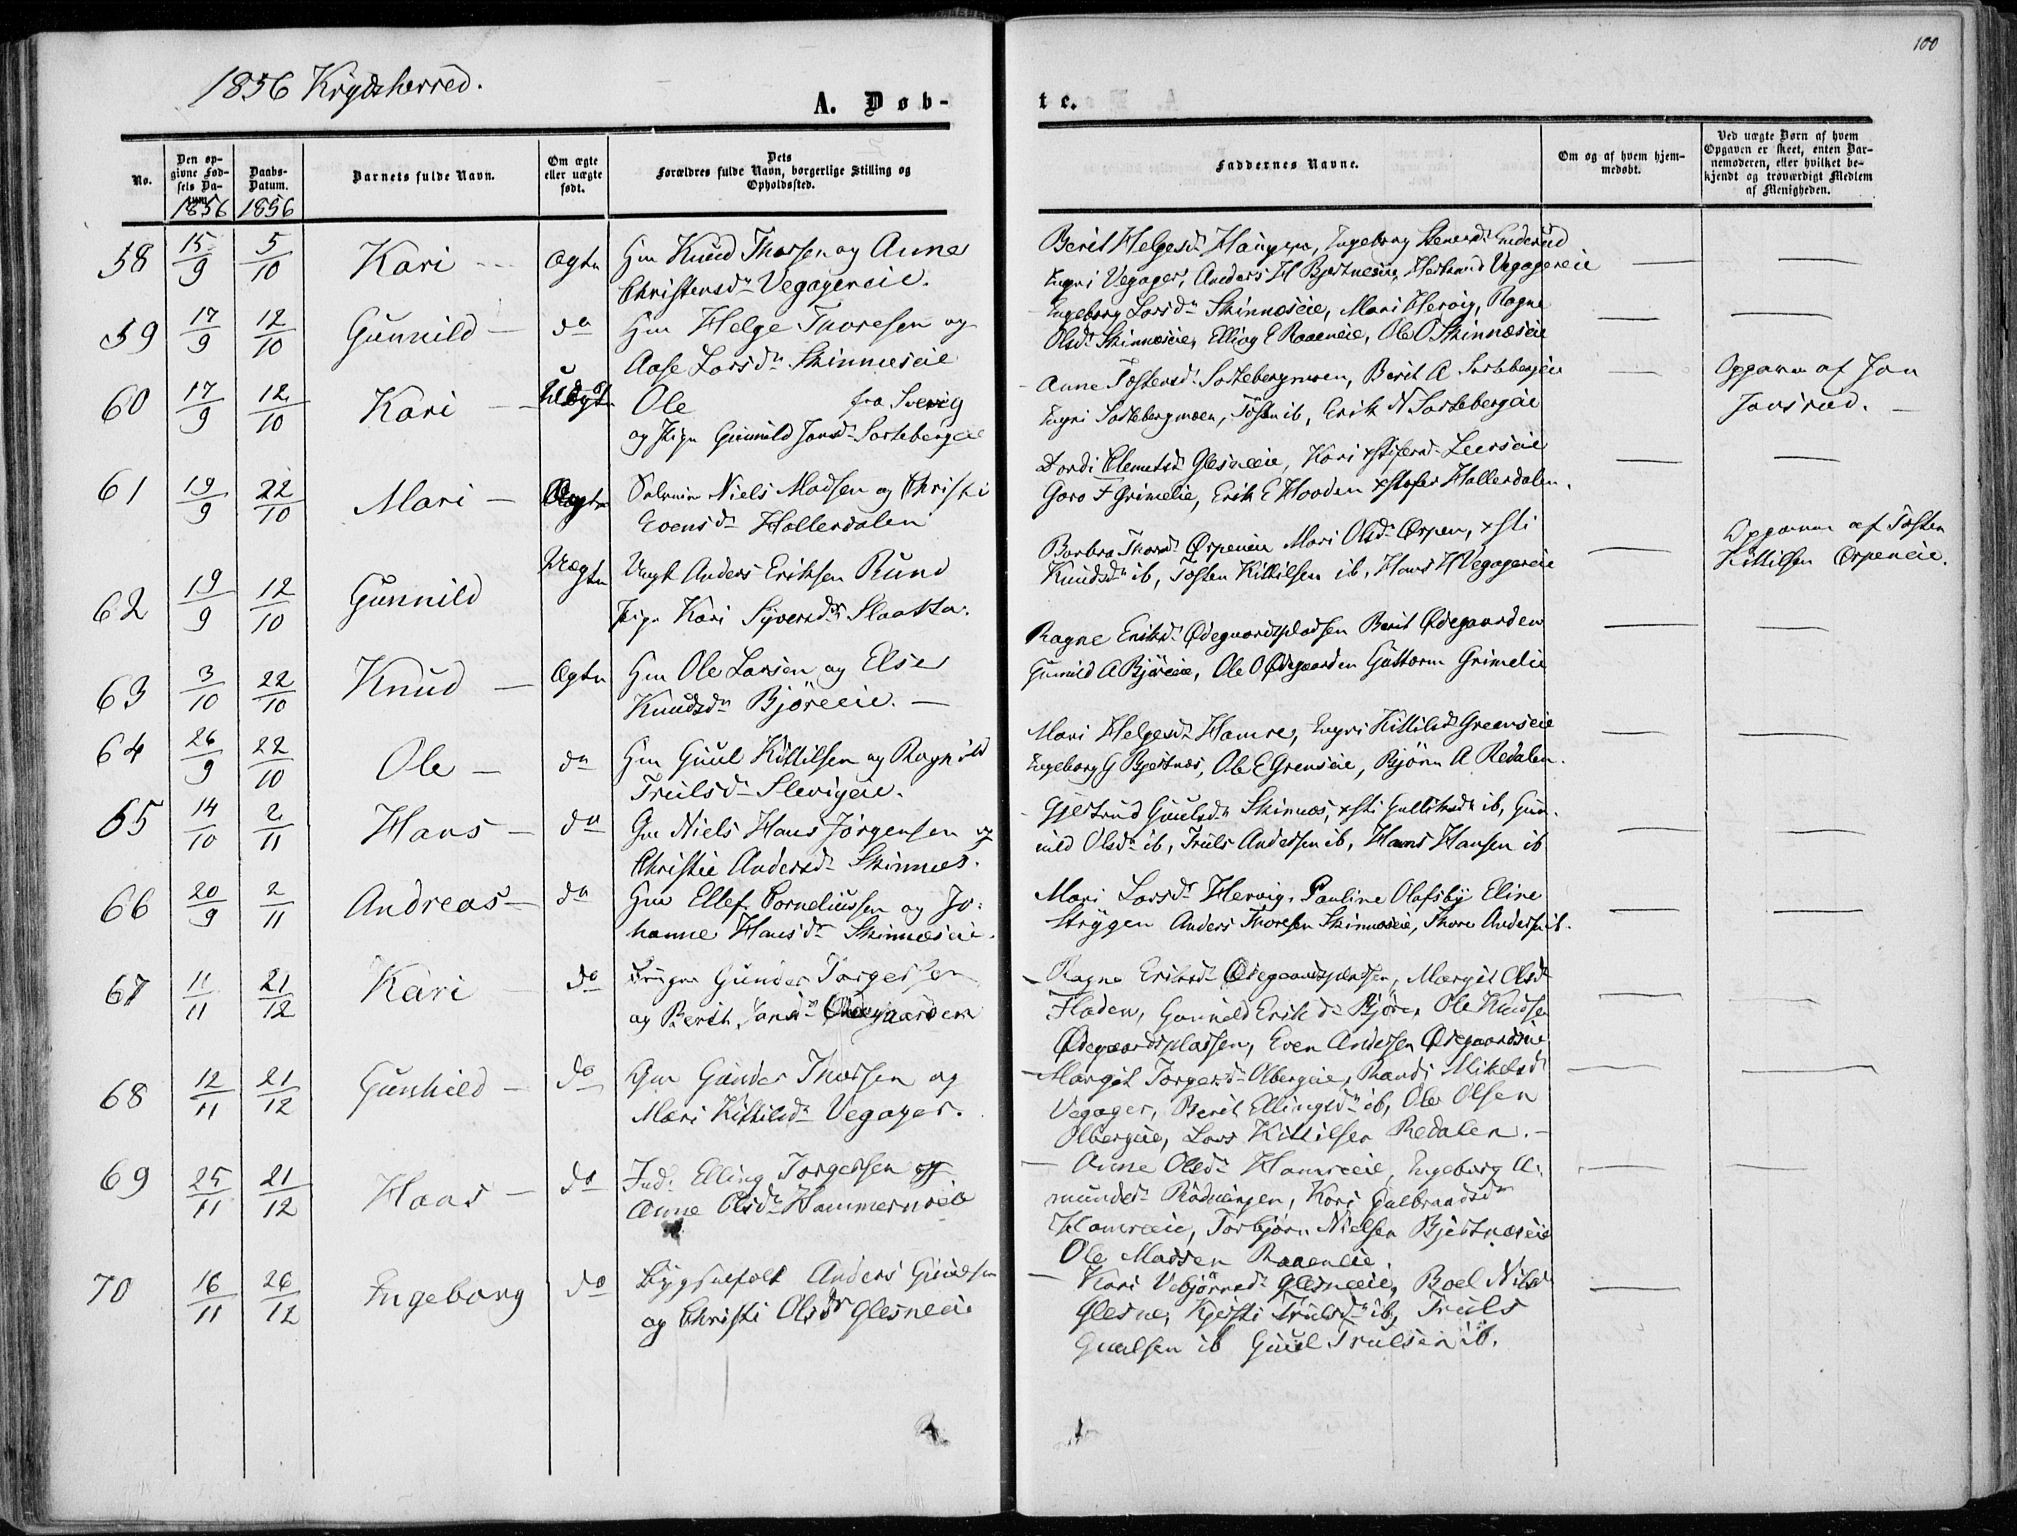 100
1856 Krydsherred.
A. Døb-
te.
No.
Den op-
givne Fød-
sels Da-
tum.
1856
Daabs-
Datum.
1856
Barnets fulde Navn.
Om ægte
eller uægte
født.
Dets
Forældres fulde Navn, borgerlige Stilling og
Opholdssted.
Faddernes Navne.
Om og af hvem hjem-
medøbt.
Ved uægte Børn af hvem
Opgaven er skeet, enten Bar-
nemoderen, eller hvilket be-
kjendt og troværdigt Medlem
af Menigheden.
58 15/9 5/10 Kari ægte Hm Knud Thorsen og Anne
Christensdr Vegagereie.
Berit Helgesd. Haugen, Ingeborg Enderud
Ingri Vegager, Anders H Bjertneseie, Herbrand Vegagereie
59 17/9 12/10 Gunnild do Hm Helge Thoresen og
Aase Larsdr Skinneseie
Ingeborg Larsdr Skinneseie, Mari Hervig, Ragne
Olsd. Skinneseie, Elling E Raaeneie, Ole O Skinneseie
60 17/9 12/10 Kari Uægte Ole fra Svevig
og Pige Gunnild Jonsd. Sortebergeie
Anne Tostensd. Sortebergmoen, Berit A Sortebergeie
Ingri Sortebergmoen, Tosten ib, Erik N Sortebergeie
Opgaven af Jon
Jonsrud.
61 19/9 22/10 Mari Ægte Niels Madsen og Christi
Evensdr Hollerdalen
Dordi Clemetsd. Glesneeie, Kari xstofersd. Leerseie
Goro F Grimelie, Erik E Hovden xstofer Hollerdalen.
62 19/9 12/10 Gunnild Uægte Ungk Anders Eriksen Rund
Pige Kari Syversdr Slaatta.
Barbra Thorsd. Ørpeneie Mari Olsdr Ørpen, xsti
Knudsdr ib, Tosten Kittilsen ib, Hans H Vegagereie
Opgaven af Tosten
Kittilsen Ørpeneie.
63 3/10 22/10 Knud Ægte Hm Ole Larsen og Else
Knudsdr Bjøreeie.
Ragne Eriksd. Ødegaardspladsen Berit Ødegaarden
Gunnild A Bjøreeie, Ole O Ødegaarden Guttorm Grimelie
64 26/9 22/10 Ole do Hm Guul Kittilsen og Ragnild
Trulsdr Slevigeie.
Mari Helgesdr Hamre, Ingri Kittilsd Grenseie
Ingeborg G Bjertnes, Ole E Grenseie, Bjørn A Redalen.
65 14/10 2/11 Hans do Gm Niels Hans Jørgensen og
Christie Andersd. Skinnes.
Gjertrud Guulsdr Skinnes, xsti Gulliksdr ib, Gun-
nild Olsdr ib, Truls Andersen ib, Hans Hansen ib
66 20/9 2/11 Andreas do Hm Ellef Corneliussen og Jo:
hanne Hansdr Skinneseie.
Mari Larsdr Hervig, Pauline Olafsby Eline
Strygen Anders Thoresen Skinneseie, Thore Andersen ib.
67 11/11 21/12 Kari do Gunder Torgersen
og Berith Jonsdr Ødegaarden
Ragne Eriksdr Ødegaardspladsen, Margit Olsdr
Floden, Gunnild Eriksdr Bjøre, Ole Knudsen
Ødegaardsplassen, Even Andersen Ødegaardseie
68 12/11 21/12 Gunhild do Gm Gunder Thorsen og
Mari Kittilsdr Vegager.
Margit Torgersdr Olbergeie, Randi Mikelsdr
Vegager, Berit Ellingsdr ib, Ole Olsen
Olbergeie, Lars Kittilsen Redalen.
69 25/11 21/12 Haas do Ind. Elling Torgersen og
Anne Olsdr Hammerneie
Anne Olsdr Hamreeie, Ingeborg A:
mundsdr Rødningen, Kari Gulbrandsdr
Hamreeie, Torbjørn Nielsen Bjertneseie
Ole Madsen Raaeneie.
70 16/11 26/12 Ingeborg do Bygselfolk Anders Guulsen
og Christi Olsdr Glesneeie
Kari Vebjørnsdr Glesneeie, Boel Nilsdr
Glesne, Kjersti Trulsdr ib, Truls
Guulsen ib Guul Trulsen ib.